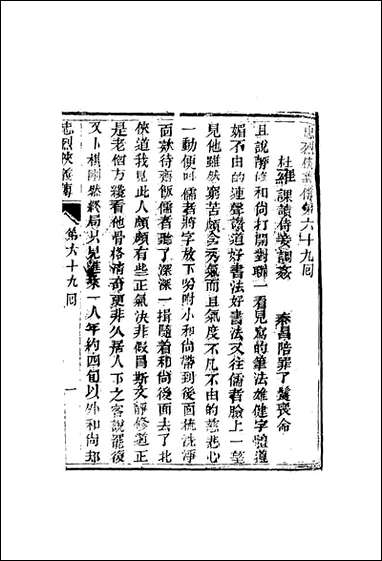 忠烈俠義傳第六十九囘
杜雍課讀侍妾調姦　秦昌陪罪丫鬟喪命
且說靜修和尚打開對聯一看見寫的筆法雄健字體遒
媚不由的連聲讚道好書法好書法又往儒者臉上一望
見他雖然窮苦頗含秀氣而且氣度不凡不由的慈悲心
一動便叫儒者將字放下吩咐小和尚帶到後面梳洗淨
面款待齋飯儒者聽了深深一揖隨着和尚後面去了北
俠道我見此人頗頗有些正氣決非假冒斯文靜修道正
是老僧方纔看他骨格清奇更非久居人下之客說罷復
又下棋剛然終局只見進來一人年約四旬以外和尚却
忠烈俠義傳
第六十九囘
一